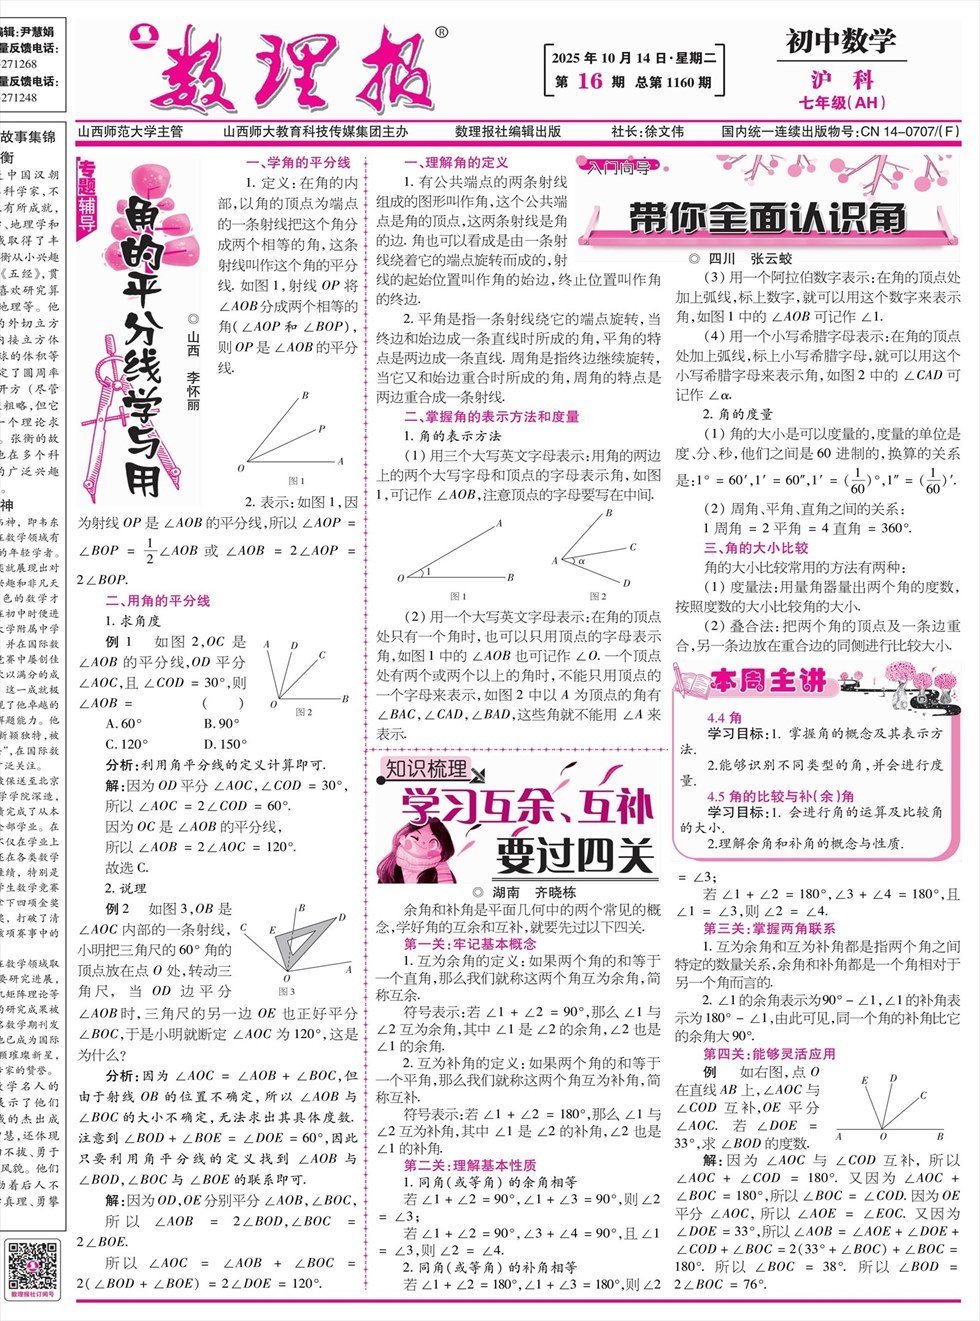 编辑:尹慧娟
271268
271248
故事集锦
数理报®
2025 年 10 月 14 日·星期二
第 16 期 总第 1160 期
初中数学
沪 科
七年级(AH)
山西师范大学主管 山西师大教育科技传媒集团主办 数理报社编辑出版 社长:徐文伟 国内统一连续出版物号:CN 14-0707/(F)
专题辅导
角的平分线学与用
◎ 山西 李怀丽
一、学角的平分线
1. 定义:在角的内
部,以角的顶点为端点
的一条射线把这个角分
成两个相等的角,这条
射线叫作这个角的平分
线. 如图 1,射线 OP 将
∠AOB 分成两个相等的
角(∠AOP 和 ∠BOP),
则 OP 是 ∠AOB 的平分
线.
B
P
O A
图 1
2. 表示:如图 1,因
为射线 OP 是 ∠AOB 的平分线,所以 ∠AOP =
∠BOP = 1/2 ∠AOB 或 ∠AOB = 2∠AOP =
2∠BOP.
二、用角的平分线
1. 求角度
例 1 如图 2,OC 是
∠AOB 的平分线,OD 平分
∠AOC,且 ∠COD = 30°,则
∠AOB = ( )
A. 60° B. 90°
C. 120° D. 150°
A D C
O B
图 2
分析:利用角平分线的定义计算即可.
解:因为 OD 平分 ∠AOC,∠COD = 30°,
所以 ∠AOC = 2∠COD = 60°.
因为 OC 是 ∠AOB 的平分线,
所以 ∠AOB = 2∠AOC = 120°.
故选 C.
2. 说理
例 2 如图 3,OB 是
∠AOC 内部的一条射线,
小明把三角尺的 60° 角的
顶点放在点 O 处,转动三
角尺, 当 OD 边平分
∠AOB 时,三角尺的另一边 OE 也正好平分
∠BOC,于是小明就断定 ∠AOC 为 120°,这是
为什么?
B D
C E
O A
图 3
分析:因为 ∠AOC = ∠AOB + ∠BOC,但
由于射线 OB 的位置不确定,所以 ∠AOB 与
∠BOC 的大小不确定,无法求出其具体度数.
注意到 ∠BOD + ∠BOE = ∠DOE = 60°,因此
只要利用角平分线的定义找到 ∠AOB 与
∠BOD,∠BOC 与 ∠BOE 的联系即可.
解:因为 OD,OE 分别平分 ∠AOB,∠BOC,
所以 ∠AOB = 2∠BOD,∠BOC =
2∠BOE.
所以 ∠AOC = ∠AOB + ∠BOC =
2(∠BOD + ∠BOE) = 2∠DOE = 120°.
入门向导
带你全面认识角
◎ 四川 张云蛟
一、理解角的定义
1. 有公共端点的两条射线
组成的图形叫作角,这个公共端
点是角的顶点,这两条射线是角
的边. 角也可以看成是由一条射
线绕着它的端点旋转而成的,射
线的起始位置叫作角的始边,终止位置叫作角
的终边.
2. 平角是指一条射线绕它的端点旋转,当
终边和始边成一条直线时所成的角,平角的特
点是两边成一条直线. 周角是指终边继续旋转,
当它又和始边重合时所成的角,周角的特点是
两边重合成一条射线.
二、掌握角的表示方法和度量
1. 角的表示方法
(1) 用三个大写英文字母表示:用角的两边
上的两个大写字母和顶点的字母表示角,如图
1,可记作 ∠AOB,注意顶点的字母要写在中间.
A
O 1 B
图 1
B
C
A α
D
图 2
(2) 用一个大写英文字母表示:在角的顶点
处只有一个角时,也可以只用顶点的字母表示
角,如图 1 中的 ∠AOB 也可记作 ∠O. 一个顶点
处有两个或两个以上的角时,不能只用顶点的
一个字母来表示,如图 2 中以 A 为顶点的角有
∠BAC,∠CAD,∠BAD,这些角就不能用 ∠A 来
表示.
(3) 用一个阿拉伯数字表示:在角的顶点处
加上弧线,标上数字,就可以用这个数字来表示
角,如图 1 中的 ∠AOB 可记作 ∠1.
(4) 用一个小写希腊字母表示:在角的顶点
处加上弧线,标上小写希腊字母,就可以用这个
小写希腊字母来表示角,如图 2 中的 ∠CAD 可
记作 ∠α.
2. 角的度量
(1) 角的大小是可以度量的,度量的单位是
度、分、秒,他们之间是 60 进制的,换算的关系
是:1° = 60′,1′ = 60″,1′ = (1/60)°,1″ = (1/60)′.
(2) 周角、平角、直角之间的关系:
1 周角 = 2 平角 = 4 直角 = 360°.
三、角的大小比较
角的大小比较常用的方法有两种:
(1) 度量法:用量角器量出两个角的度数,
按照度数的大小比较角的大小.
(2) 叠合法:把两个角的顶点及一条边重
合,另一条边放在重合边的同侧进行比较大小.
本周主讲
4.4 角
学习目标:1. 掌握角的概念及其表示方
法.
2.能够识别不同类型的角,并会进行度
量.
4.5 角的比较与补(余)角
学习目标:1. 会进行角的运算及比较角
的大小.
2.理解余角和补角的概念与性质.
知识梳理
学习互余、互补
要过四关
◎ 湖南 齐晓栋
余角和补角是平面几何中的两个常见的概
念,学好角的互余和互补,就要先过以下四关.
第一关:牢记基本概念
1. 互为余角的定义:如果两个角的和等于
一个直角,那么我们就称这两个角互为余角,简
称互余.
符号表示:若 ∠1 + ∠2 = 90°,那么 ∠1 与
∠2 互为余角,其中 ∠1 是 ∠2 的余角,∠2 也是
∠1 的余角.
2. 互为补角的定义:如果两个角的和等于
一个平角,那么我们就称这两个角互为补角,简
称互补.
符号表示:若 ∠1 + ∠2 = 180°,那么 ∠1 与
∠2 互为补角,其中 ∠1 是 ∠2 的补角,∠2 也是
∠1 的补角.
第二关:理解基本性质
1. 同角(或等角) 的余角相等
若 ∠1 + ∠2 = 90°,∠1 + ∠3 = 90°,则 ∠2
= ∠3;
若 ∠1 + ∠2 = 90°,∠3 + ∠4 = 90°,且 ∠1
= ∠3,则 ∠2 = ∠4.
2. 同角(或等角) 的补角相等
若 ∠1 + ∠2 = 180°,∠1 + ∠3 = 180°,则 ∠2
= ∠3;
若 ∠1 + ∠2 = 180°,∠3 + ∠4 = 180°,且
∠1 = ∠3,则 ∠2 = ∠4.
第三关:掌握两角联系
1. 互为余角和互为补角都是指两个角之间
特定的数量关系,余角和补角都是一个角相对于
另一个角而言的.
2. ∠1 的余角表示为 90° - ∠1,∠1 的补角表
示为 180° - ∠1,由此可见,同一个角的补角比它
的余角大 90°.
第四关:能够灵活应用
例 如右图,点 O
在直线 AB 上,∠AOC 与
∠COD 互补,OE 平分
∠AOC. 若 ∠DOE =
33°,求 ∠BOD 的度数.
E D
C
A O B
解:因为 ∠AOC 与 ∠COD 互补,所以
∠AOC + ∠COD = 180°. 又因为 ∠AOC +
∠BOC = 180°,所以 ∠BOC = ∠COD. 因为 OE
平分 ∠AOC,所以 ∠AOE = ∠EOC. 又因为
∠DOE = 33°,所以 ∠AOB = ∠AOE + ∠DOE +
∠COD + ∠BOC = 2(33° + ∠BOC) + ∠BOC =
180°. 所以 ∠BOC = 38°. 所以 ∠BOD =
2∠BOC = 76°.
数理报社订阅号